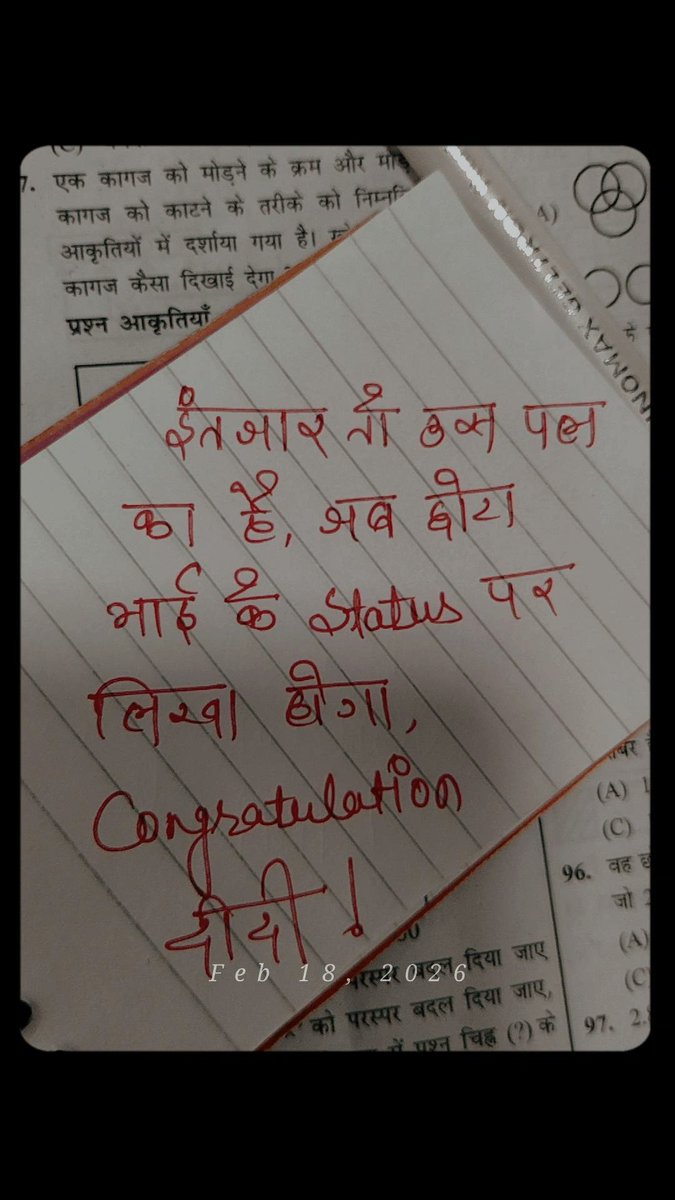 7. एक कागज को मोड़ने के क्रम और
कागज को काटने के तरीके को
आकृतियों में दर्शाया गया है।
कागज कैसा दिखाई देगा
प्रश्न आकृतियाँ
A)
इंतजार तो उस पल
का है, जब छोटा
भाई के Status पर
लिखा होगा,
Congratulation
दीदी !
Feb 18, 2026
(A) 1
(C)
96. वह
जो
(A)
(C
97. 2.
परस्पर बदल दिया जाए
को परस्पर बदल दिया जाए,
में प्रश्न चिह्न (?) के